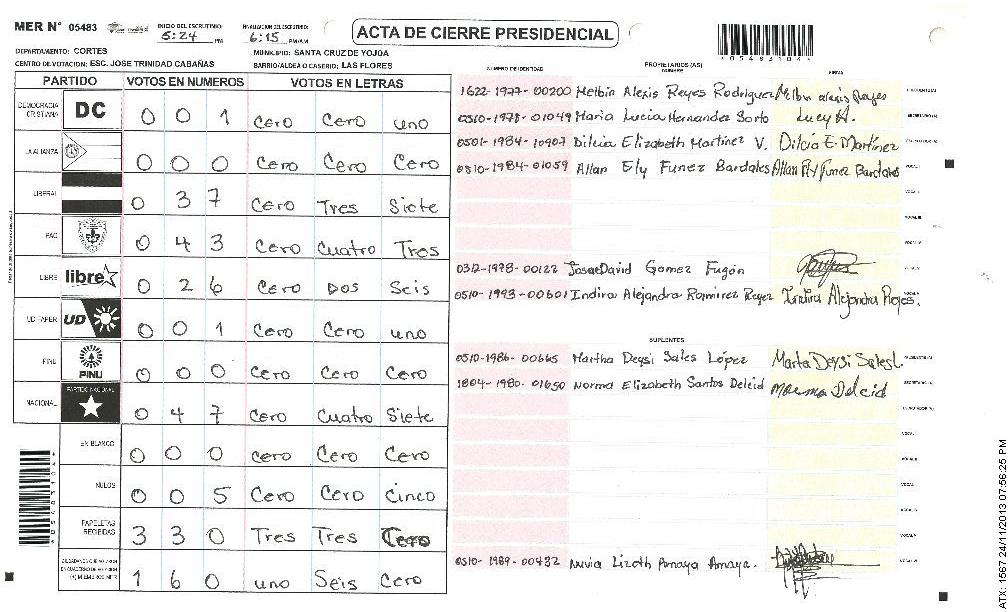 MER N° 05483
INICIO DEL ESCRUTINIO
5:24 PM
FINALIZACION DEL ESCRUTINIO
6:15 PM/AM
ACTA DE CIERRE PRESIDENCIAL
*05483104*
DEPARTAMENTO: CORTES
MUNICIPIO: SANTA CRUZ DE YOJOA
CENTRO DE VOTACION: ESC. JOSE TRINIDAD CABAÑAS
BARRIO/ALDEA O CASERIO: LAS FLORES
PARTIDO VOTOS EN NUMEROS VOTOS EN LETRAS
DEMOCRACIA CRISTIANA DC 0 0 1 Cero Cero uno
LA ALIANZA 0 0 0 Cero Cero Cero
LIBERAL 0 3 7 Cero Tres Siete
PAC 0 4 3 Cero Cuatro Tres
LIBRE libre 0 2 6 Cero Dos Seis
UD FAPER UD 0 0 1 Cero Cero uno
PINU PINU 0 0 0 Cero Cero Cero
NACIONAL PARTIDO NACIONAL 0 4 7 Cero Cuatro Siete
EN BLANCO 0 0 0 Cero Cero Cero
NULOS 0 0 5 Cero Cero Cinco
PAPELETAS RECIBIDAS 3 3 0 Tres Tres Cero
1 6 0 uno Seis Cero
NUMERO DE IDENTIDAD PROPIETARIOS (AS) NOMBRE FIRMA
1622-1977-00200 Melbin Alexis Reyes Rodriguez Melbin alexis Reyes PRESIDENTE(A)
0510-1978-01049 Maria Lucia Hernandez Sorto Lucy H. SECRETARIO(A)
0501-1984-10907 Dilcia Elizabeth Martinez V. Dilcia E. Martínez
0510-1984-01059 Allan Ely Funez Bardales Allan Ely Funez Bardales VOCAL I
VOCAL II
VOCAL III
VOCAL IV
0312-1978-00122 Josue David Gomez Fugón VOCAL V
0510-1993-00601 Indira Alejandra Ramirez Reyes Indira Alejandra Reyes.
SUPLENTES
0510-1986-00665 Martha Deysi Sales López Marta Deysi Sales L. PRESIDENTE(A)
1804-1980-01650 Norma Elizabeth Santos Delcid Norma Delcid SECRETARIO(A)
ESCRUTADOR(A)
VOCAL I
VOCAL II
VOCAL III
VOCAL IV
VOCAL V
0510-1989-00432 Nuvia Lizeth Amaya. VOCAL VI
ATX: 1567 24/11/2013 07:56:25 PM